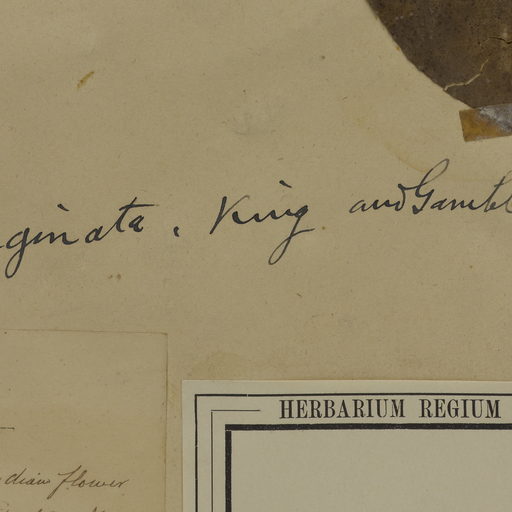 ginata, King and Gambl
HERBARIUM REGIUM
dian flower